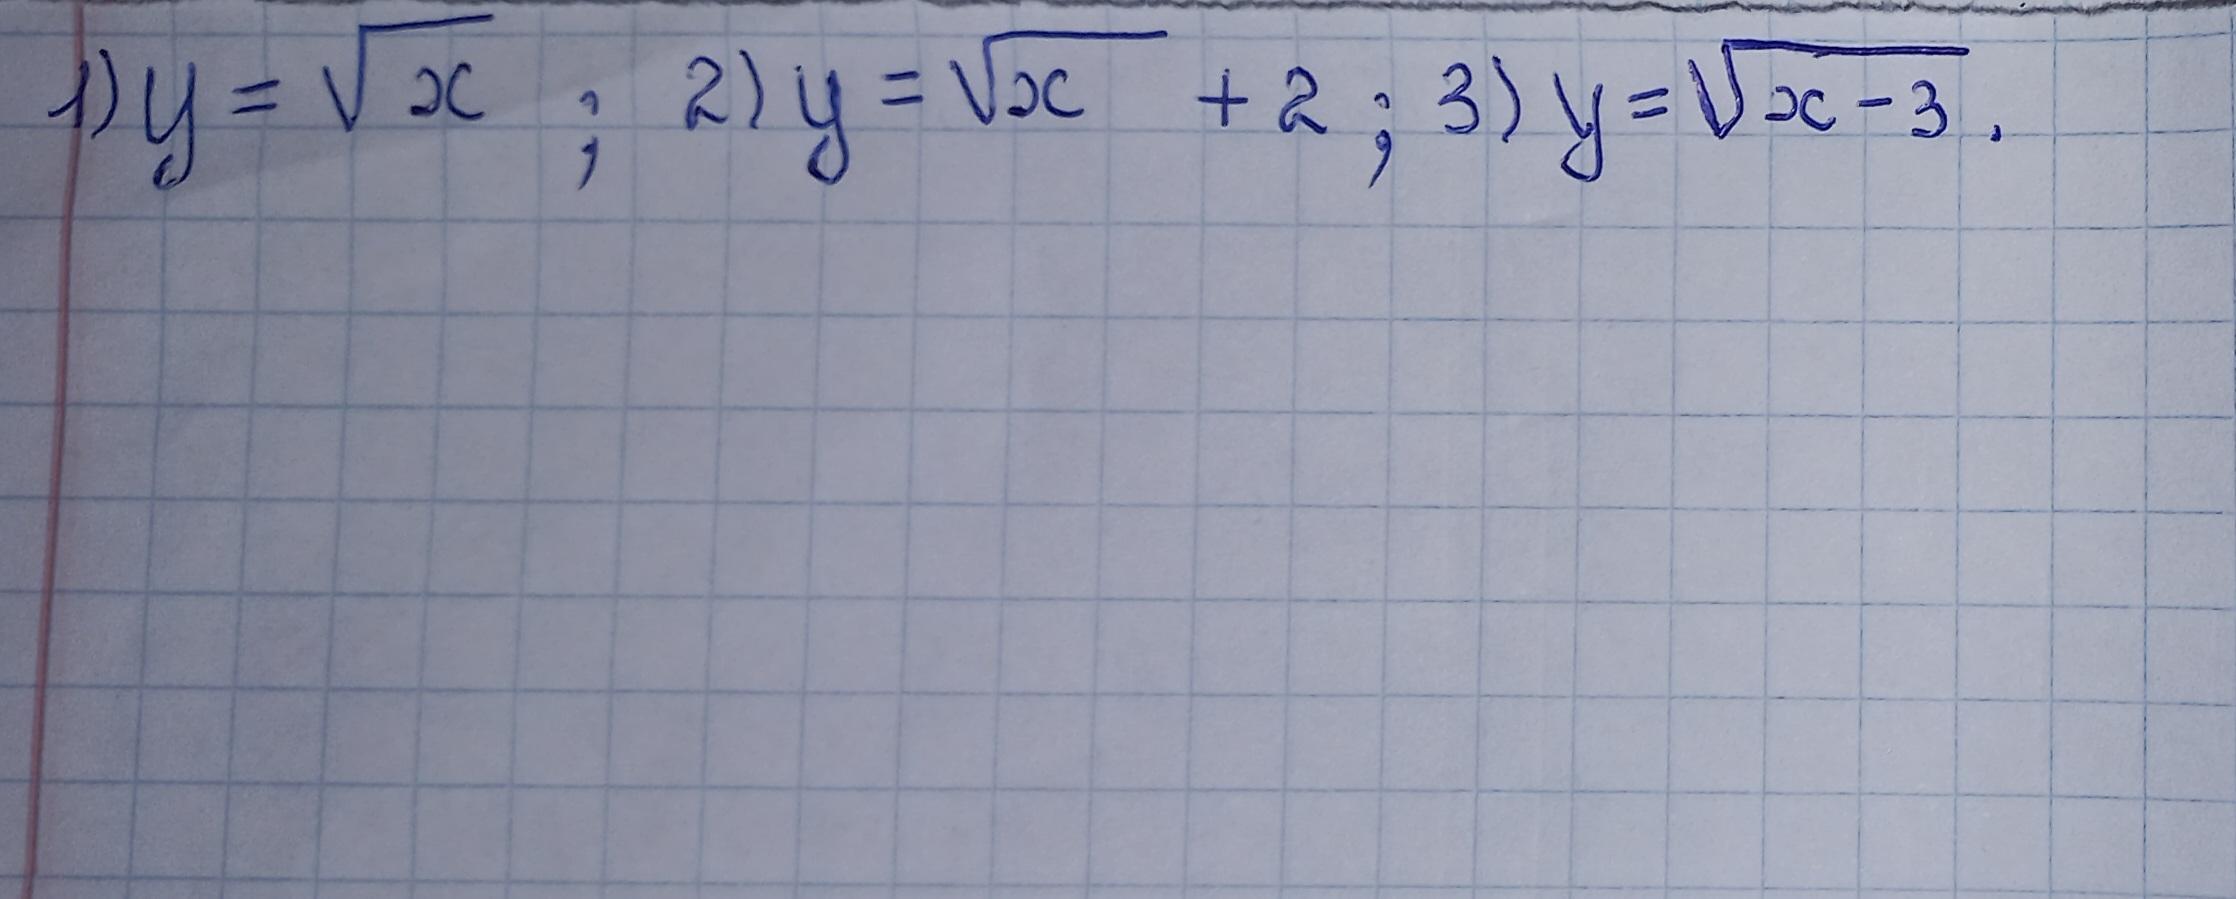 1) y = √x ; 2) y = √x + 2 ; 3) y = √(x - 3) .